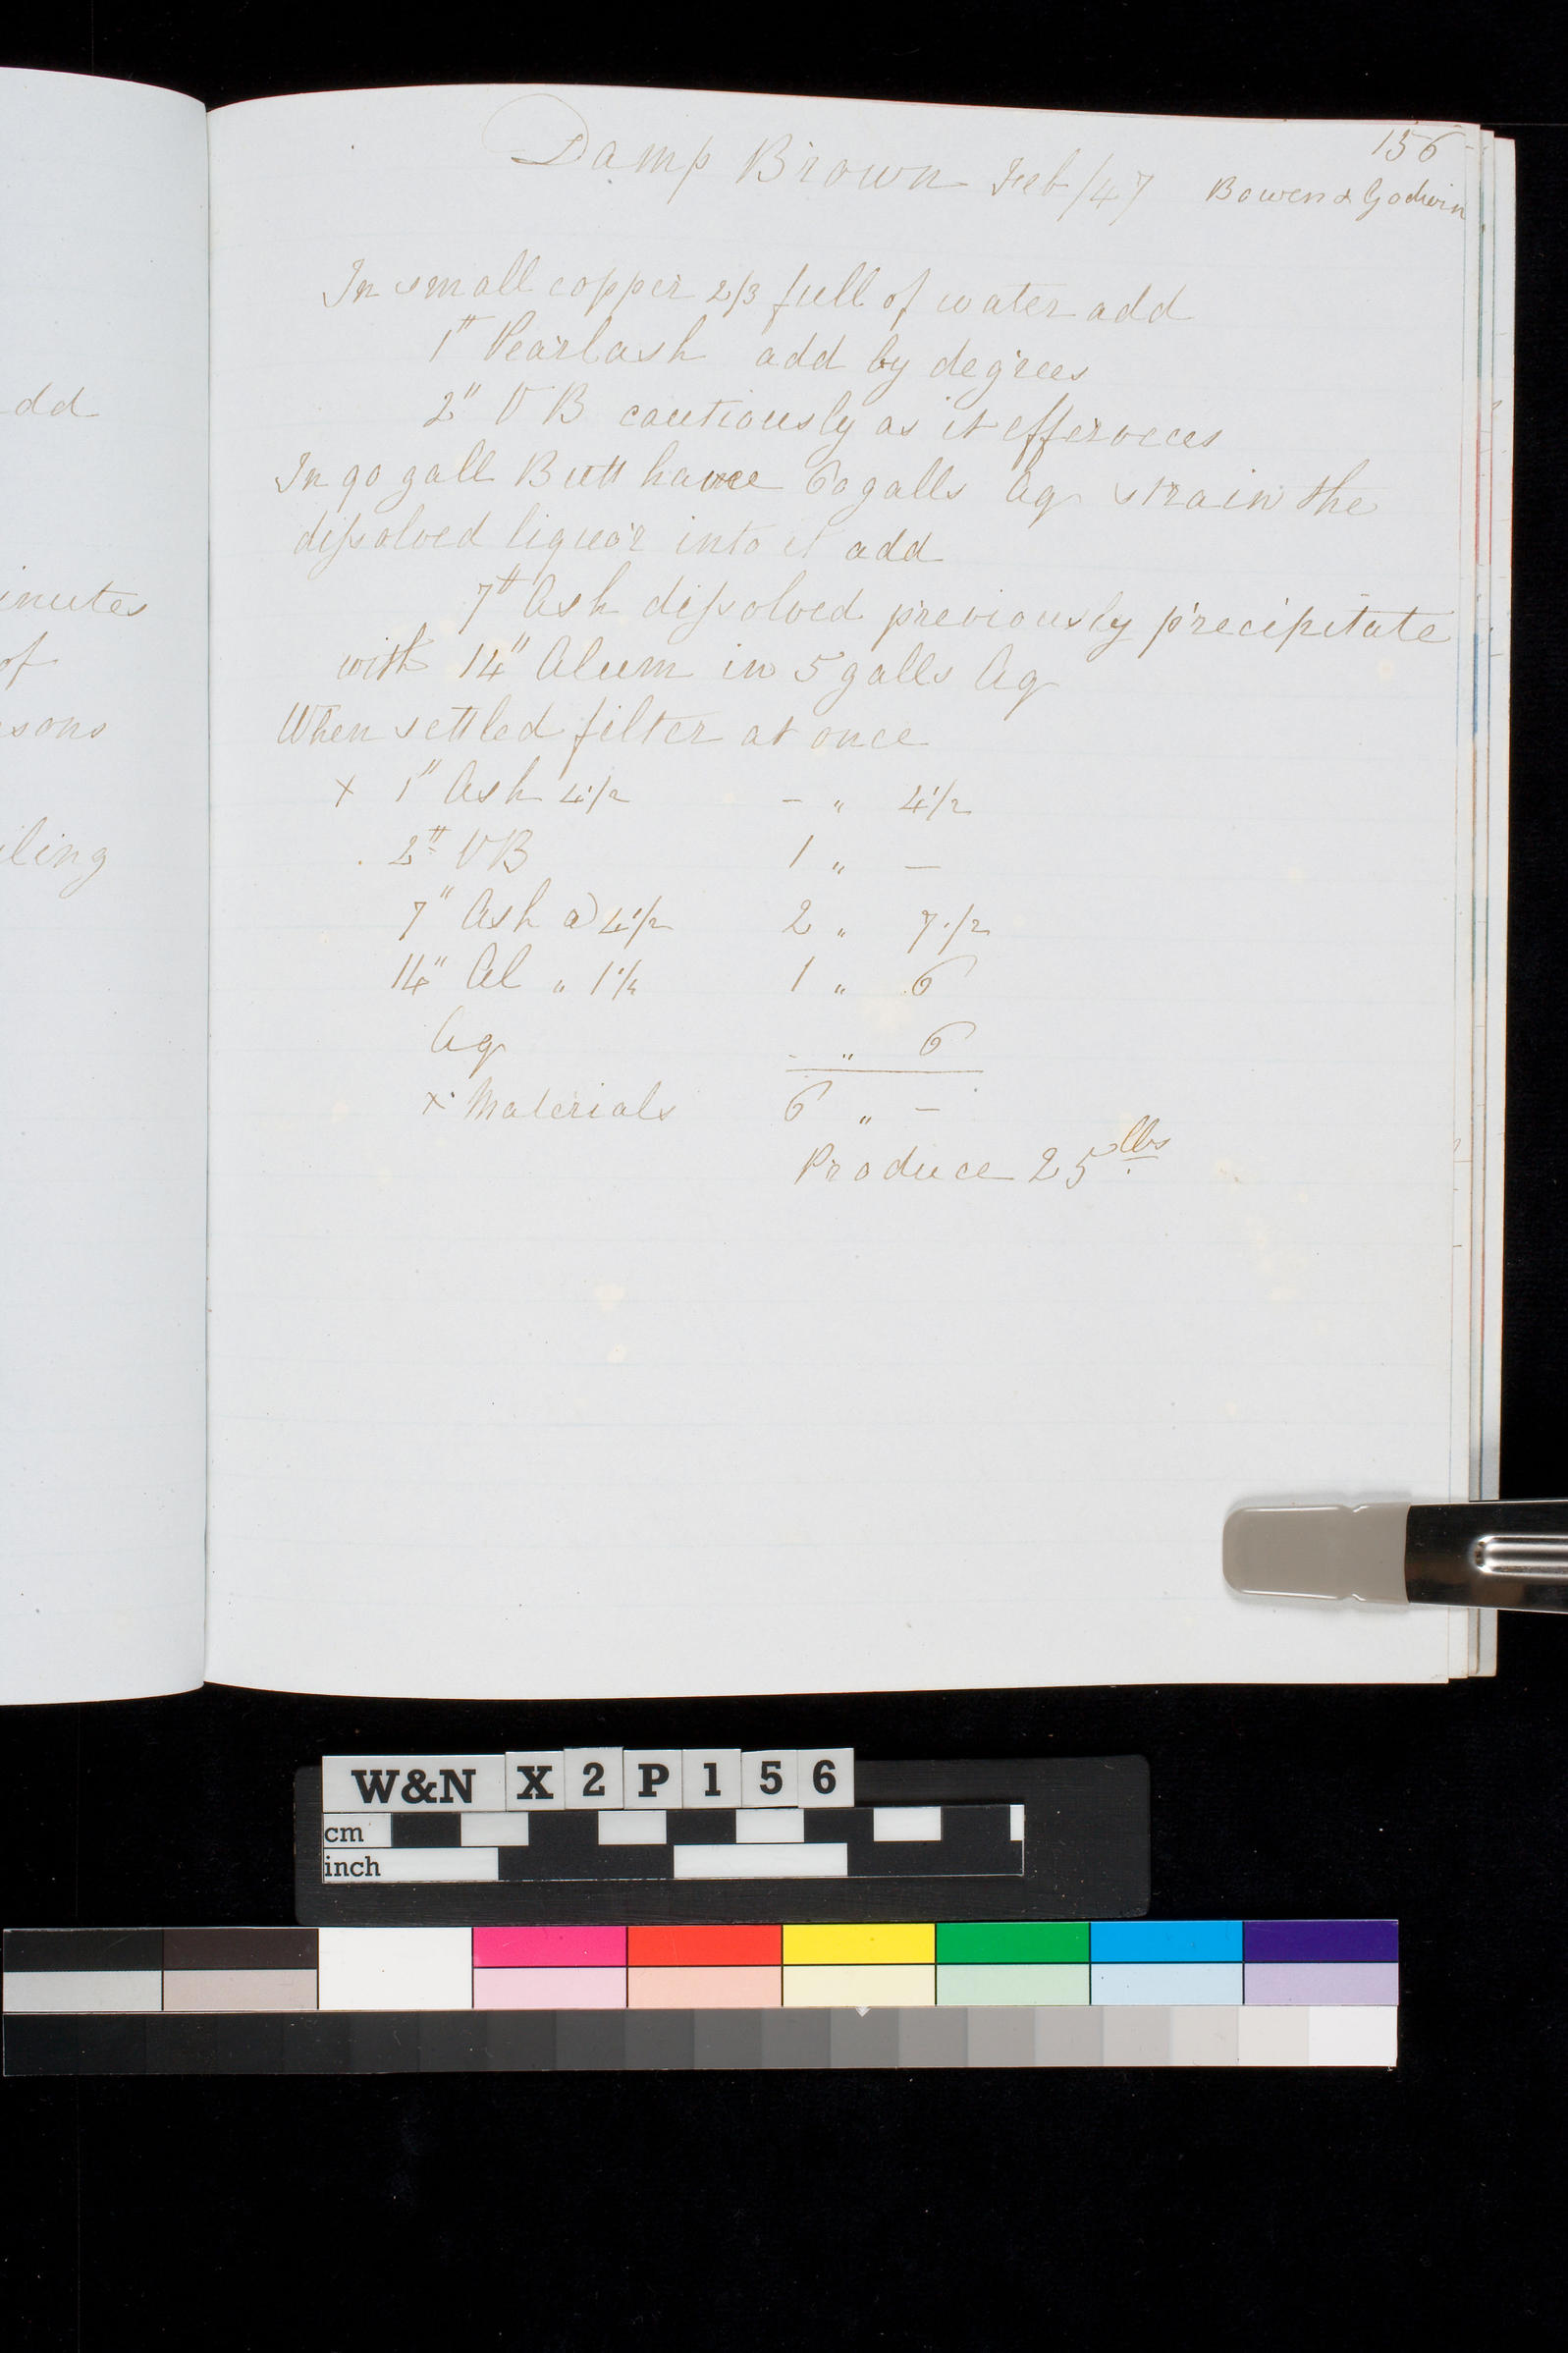 156
Damp Brown Feb/47 Bowen & Godwin
In small copper 2/3 full of water add
1# Pearlash add by degrees
2" VB cautiously as it efferveces
In 90 gall Butt have 60 galls Aq strain the
dissolved liquor into it add
7# Ash dissolved previously precipitate
with 14" Alum in 5 galls Aq
When settled filter at once
x 1" Ash 4 1/2 - " 4 1/2
2# VB 1 " -
7" Ash @ 4 1/2 2 " 7 1/2
14" Al " 1 1/4 1 " 6
Aq - " 6
x Materials 6 " -
Produce 25 lbs
dd
inutes
of
sons
iling
W&N X2P156
cm
inch